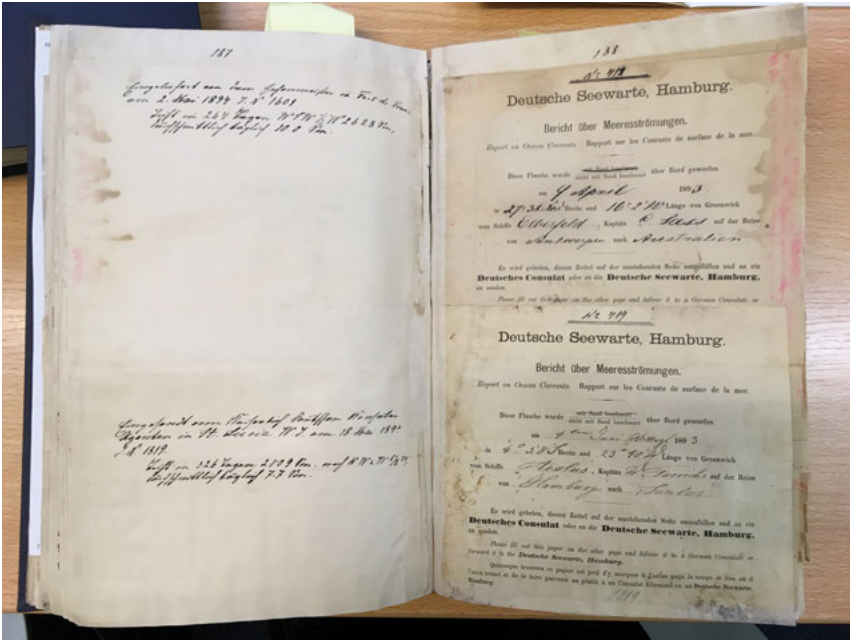 187
Eingeliefert von dem Hafenmeister in Fort de
am 2. Mai 1894 J. N° 1609
Trift in 267 Tagen
durchschnittlich täglich 10.0 Sm.
Eingesandt vom Kaiserlich Deutschen Konsular
Agenten in St. Lucia W.I. am 18 Mai 189
J. N° 1819.
Trift in 326 Tagen 2509 Sm. nach
durchschnittlich täglich 7.7 Sm.
138
No 718
Deutsche Seewarte, Hamburg.
Bericht über Meeresströmungen.
Report on Ocean Currents Rapport sur les Courants de surface de la mer.
Diese Flasche wurde mit Sand beschwert
nicht mit Sand beschwert über Bord geworfen
am 9 April 1893
in 27° 38' Breite und 16° 2' W Länge von Greenwich
vom Schiffe Elberfeld, Kapitän C. Sass auf der Reise
von Antwerpen nach Australien.
Es wird gebeten, diesen Zettel auf der umstehenden Seite auszufüllen und an ein
Deutsches Consulat oder an die Deutsche Seewarte, Hamburg,
zu senden.
Please fill out this paper on the other page and deliver it to a German Consulate or
No 719
Deutsche Seewarte, Hamburg.
Bericht über Meeresströmungen.
Report on Ocean Currents Rapport sur les Courants de surface de la mer.
Diese Flasche wurde mit Sand beschwert
nicht mit Sand beschwert über Bord geworfen
am 1893
in 4° 28' Breite und 23° 40' W Länge von Greenwich
vom Schiffe, Kapitän auf der Reise
von Hamburg nach Santos
Es wird gebeten, diesen Zettel auf der umstehenden Seite auszufüllen und an ein
Deutsches Consulat oder an die Deutsche Seewarte, Hamburg,
zu senden.
Please fill out this paper on the other page and deliver it to a German Consulate or
forward it to the Deutsche Seewarte, Hamburg.
Quiconque trouvera ce papier est prié d'y marquer à l'autre page le temps et lieu où il
l'aura trouvé et de le faire parvenir au plutôt à un Consulat Allemand ou au Deutsche Seewarte,
Hamburg.
1819